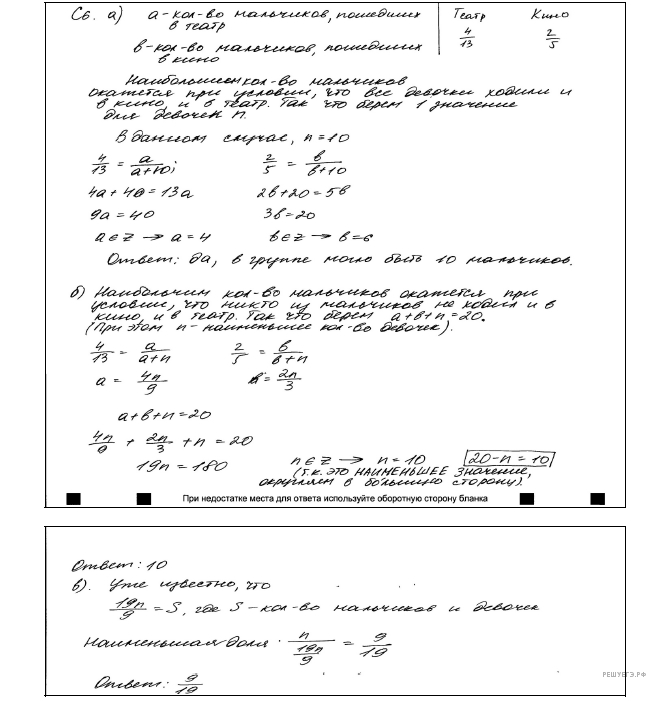 C6. а) а-кол-во мальчиков, пошедших в театр
в-кол-во мальчиков, пошедших в кино
Театр Кино
4/13 2/5
Наибольшим кол-во мальчиков
окажется при условии, что все девочки ходили и
в кино, и в театр. Так что берем 1 значение
для девочек n.
В данном случае, n=10
4/13 = a/(a+10); 2/5 = в/(в+10)
4a+40=13a 2в+20=5в
9a=40 3в=20
a∈Z → a=4 в∈Z → в=6
Ответ: да, в группе могло быть 10 мальчиков.
б) Наибольшим кол-во мальчиков окажется при
условии, что никто из мальчиков не ходил и в
кино, и в театр. Так что берем a+в+n=20.
(При этом n-наименьшее кол-во девочек).
4/13 = a/(a+n) 2/5 = в/(в+n)
a = 4n/9 в = 2n/3
a+в+n=20
4n/9 + 2n/3 + n = 20
19n=180 n∈Z → n=10 20-n=10
(т.к. ЭТО НАИМЕНЬШЕЕ значение,
округляем в большую сторону).
При недостатке места для ответа используйте оборотную сторону бланка
Ответ: 10
в). Уже известно, что
19n/9 = S, где S-кол-во мальчиков и девочек
Наименьшая доля: n/(19n/9) = 9/19
Ответ: 9/19
РЕШУЕГЭ.РФ